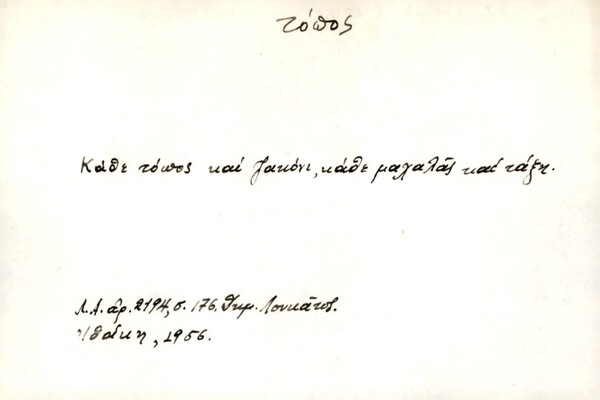 τόπος
Κάθε τόπος καί ζακόνι, κάθε μαχαλᾶς καί τάξη.
Λ.Α. ἀρ. 2194, σ. 176. Δημ. Λουκᾶτος.
Ἰθάκη, 1956.